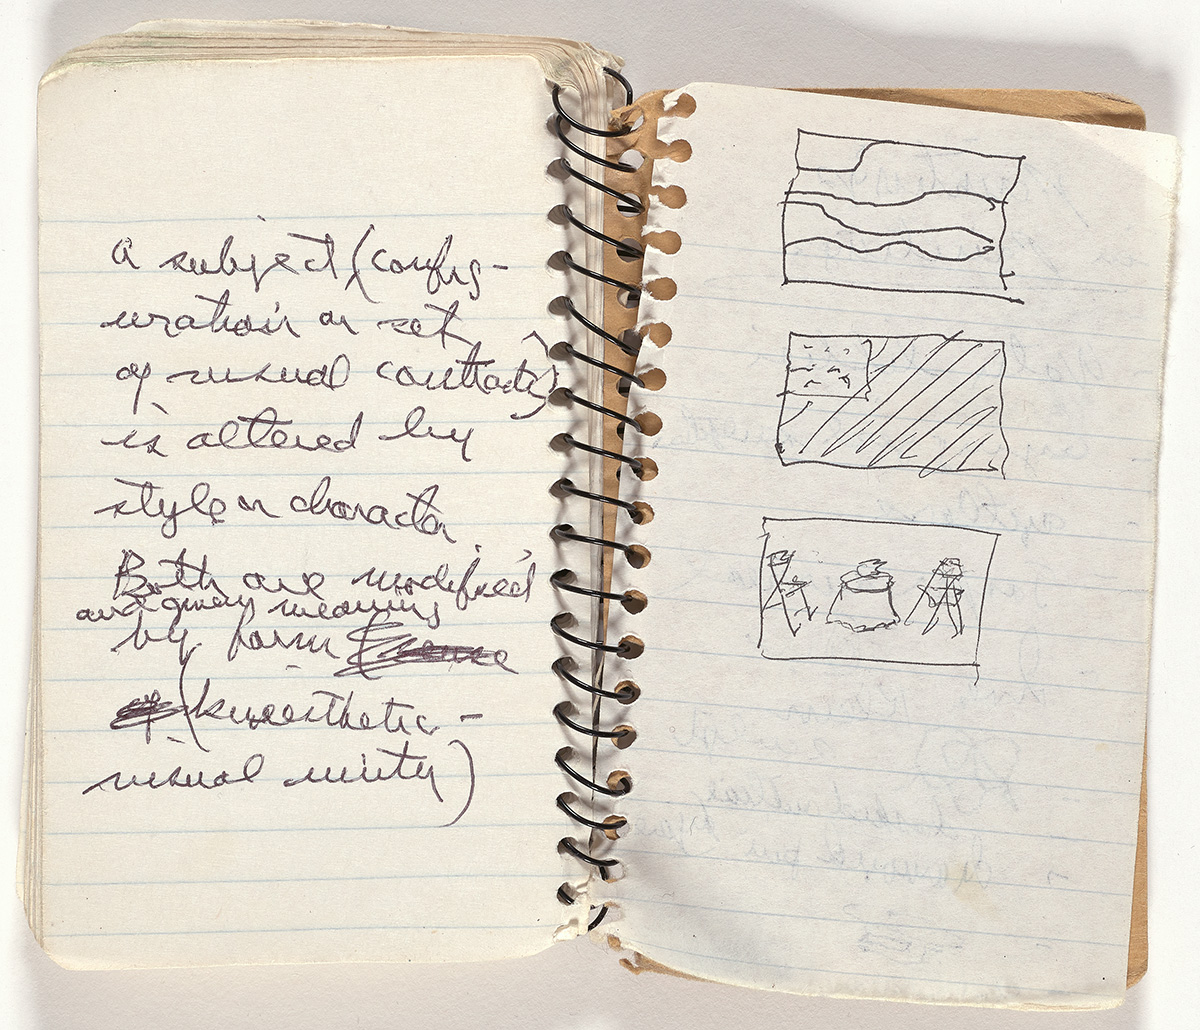 A subject (config-
uration or set
of visual contrasts)
is altered by
style or character.
Both are modified
and given meaning
by form
(kinesthetic-
visual unity)